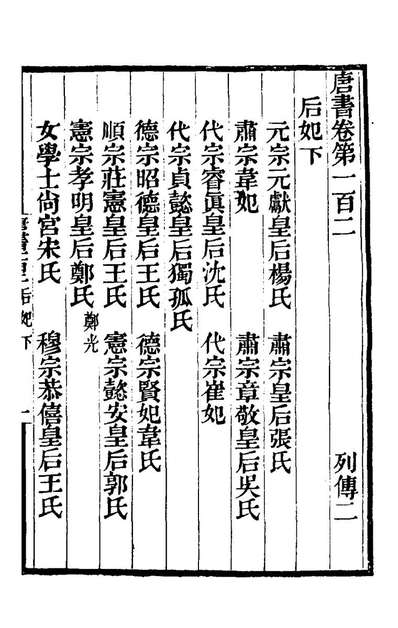 唐書卷第一百二　列傳二
后妃下
元宗元獻皇后楊氏　肅宗皇后張氏
肅宗韋妃　肅宗章敬皇后吳氏
代宗睿眞皇后沈氏　代宗崔妃
代宗貞懿皇后獨孤氏
德宗昭德皇后王氏　德宗賢妃韋氏
順宗莊憲皇后王氏　憲宗懿安皇后郭氏
憲宗孝明皇后鄭氏鄭光
女學士尙宮宋氏　穆宗恭僖皇后王氏
后妃下　一